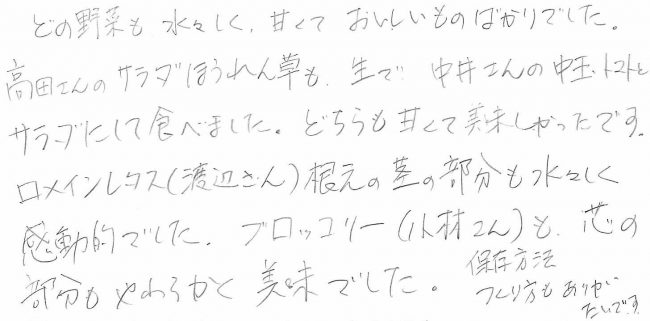 どの野菜も水々しく、甘くておいしいものばかりでした。
高田さんのサラダほうれん草も、生で中井さんの中玉トマトと
サラダにして食べました。どちらも甘くて美味しかったです。
ロメインレタス(渡辺さん)根元の茎の部分も水々しく
感動的でした。ブロッコリー(小林さん)も、芯の
部分もやわらかく美味でした。
保存方法
つくり方もありがたいです。